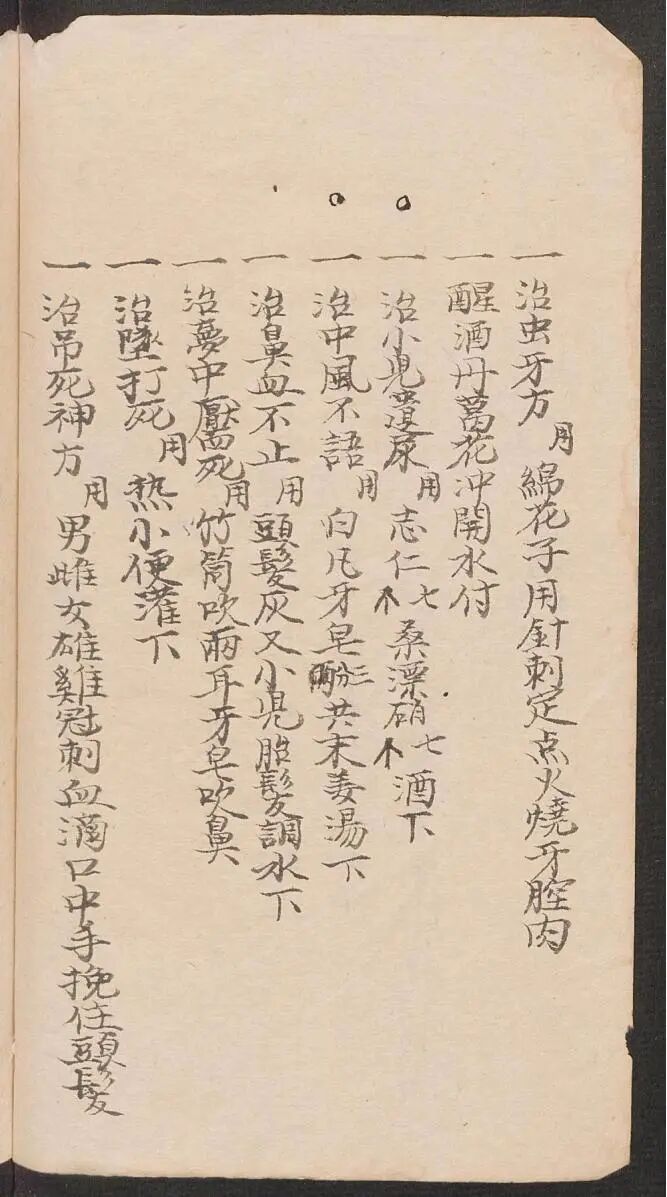 一 治虫牙方用綿花子用針刺定点火燒牙腔肉
一 醒酒丹葛花冲開水付
一 治小児遺尿用志仁七个桑漂硝七个酒下
一 治中風不語用白凡牙皂三分共末姜湯下
一 治鼻血不止用頭髮灰又小児胎髮調水下
一 治夢中壓死用竹筒吹兩耳牙皂吹鼻
一 治墜打死用热小便灌下
一 治吊死神方用男雌女雄雞冠刺血滴口中手挽住頭髮